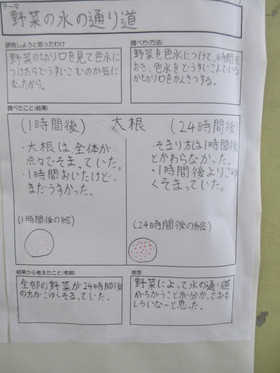 テーマ
野菜の水の通り道
研究しようと思ったわけ
野菜の切り口を見て色水に
つけたらどうすいこむのか気に
なったから。
調べ方(方法)
野菜を色水につけて、時間
おき、色水をどうすいこんでいるか
切り口をかんさつする。
調べたこと(結果)
大根
(1時間後)
・大根は全体が
点々でそまっていた。
・1時間おいたけど、
まだうすかった。
(24時間後)
・そまり方は1時間
とかわらなかった。
・1時間後よりこ
くそまっていた。
(1時間後の絵)
(24時間後の絵)
結果から考えたこと(考察)
全部の野菜が24時間後
の方がこくそまっていた。
感想
野菜によって水の通り道
がちがうことが分かっておも
しろいなーと思った。